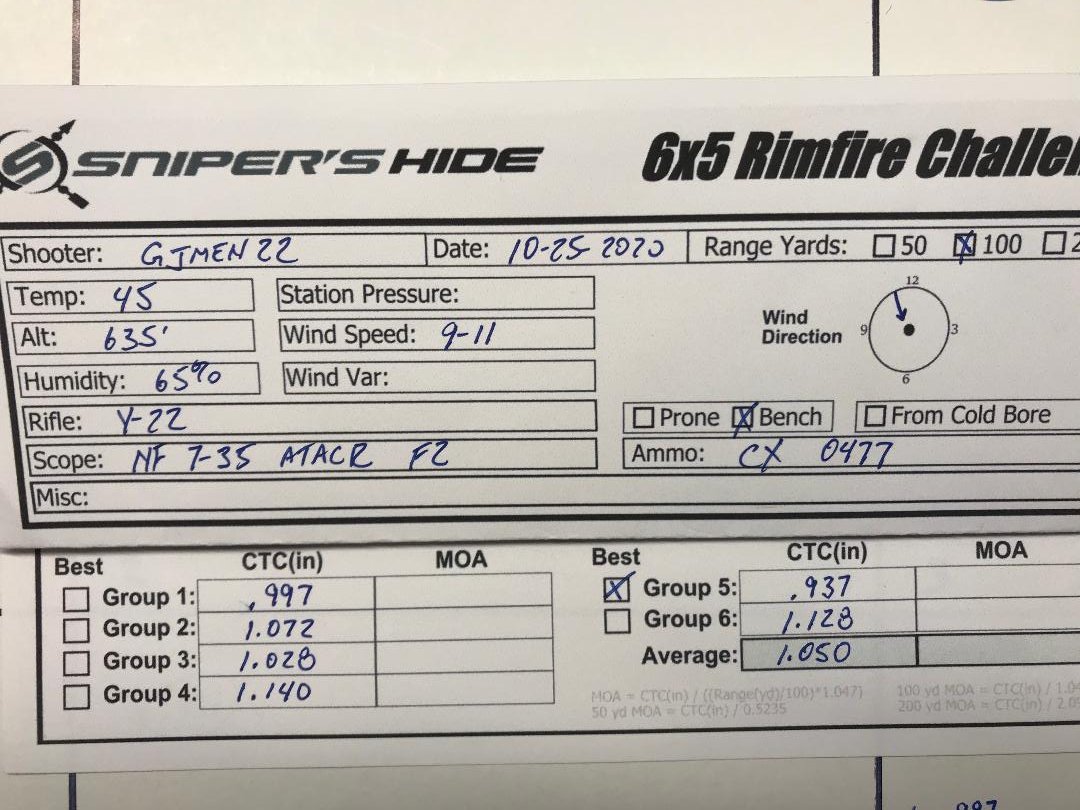 SNIPER'S HIDE 6x5 Rimfire Challen
Shooter: GJMEN22 Date: 10-25 2020 Range Yards: 50 X 100 2
Temp: 45 Station Pressure:
12
Alt: 635' Wind Speed: 9-11 Wind Direction 9 3
6
Humidity: 65% Wind Var:
Rifle: V-22 Prone X Bench From Cold Bore
Scope: NF 7-35 ATACR F2 Ammo: CX 0477
Misc:
Best CTC(in) MOA Best CTC(in) MOA
Group 1: .997 X Group 5: .937
Group 2: 1.072 Group 6: 1.128
Group 3: 1.028 Average: 1.050
Group 4: 1.140
MOA = CTC(in) / ((Range(yd)/100)*1.047) 100 yd MOA = CTC(in) / 1.04
50 yd MOA = CTC(in) / 0.5235 200 yd MOA = CTC(in) / 2.09